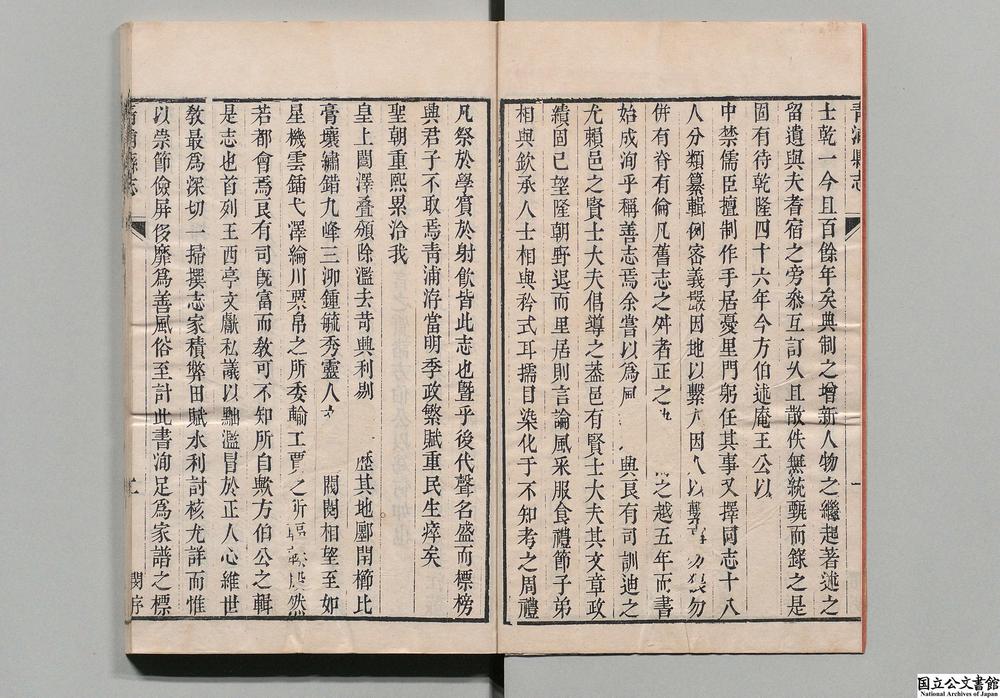 青浦縣志
士乾一今且百餘年矣典制之增新人物之繼起著述之
留遺與夫耆宿之旁叅互訂久且散佚無統甄而錄之是
固有待乾隆四十六年今方伯述庵王公以
中禁儒臣擅制作手居憂里門躬任其事又擇同志十八
人分類纂輯例客義嚴因地以繫 因人以 勿
併有脊有倫凡舊志之舛者正之 之越五年而書
始成洵乎稱善志焉余嘗以為風 典良有司訓迪之
尤賴邑之賢士大夫倡導之葢邑有賢士大夫其文章政
績固已望隆朝野退而里居則言論風采服食禮節子弟
相與欽承人士相與矜式耳擩目染化于不知考之周禮
一
凡祭於學賓於射飲皆此志也曁乎後代聲名盛而標榜
興君子不取焉青浦洊當明季政繁賦重民生瘁矣
聖朝重熙累洽我
皇上闓澤叠頒除濫去苛興利剔 歷其地郾閈櫛比
膏壤繡錯九峰三泖鍾毓秀靈人 閥閱相望至如
星機雲鍤弋澤綸川粟帛之所委輸工賈之所 然
若都會焉良有司旣富而敎可不知所自歟方伯公之輯
是志也首列王西亭文獻私議以黜濫冒於正人心維世
敎最爲深切一掃撰志家積弊田賦水利討核尤詳而惟
以崇節儉屏侈靡爲善風俗至計此書洵足爲家譜之標
青浦縣志
二
閔序
国立公文書館
National Archives of Japan